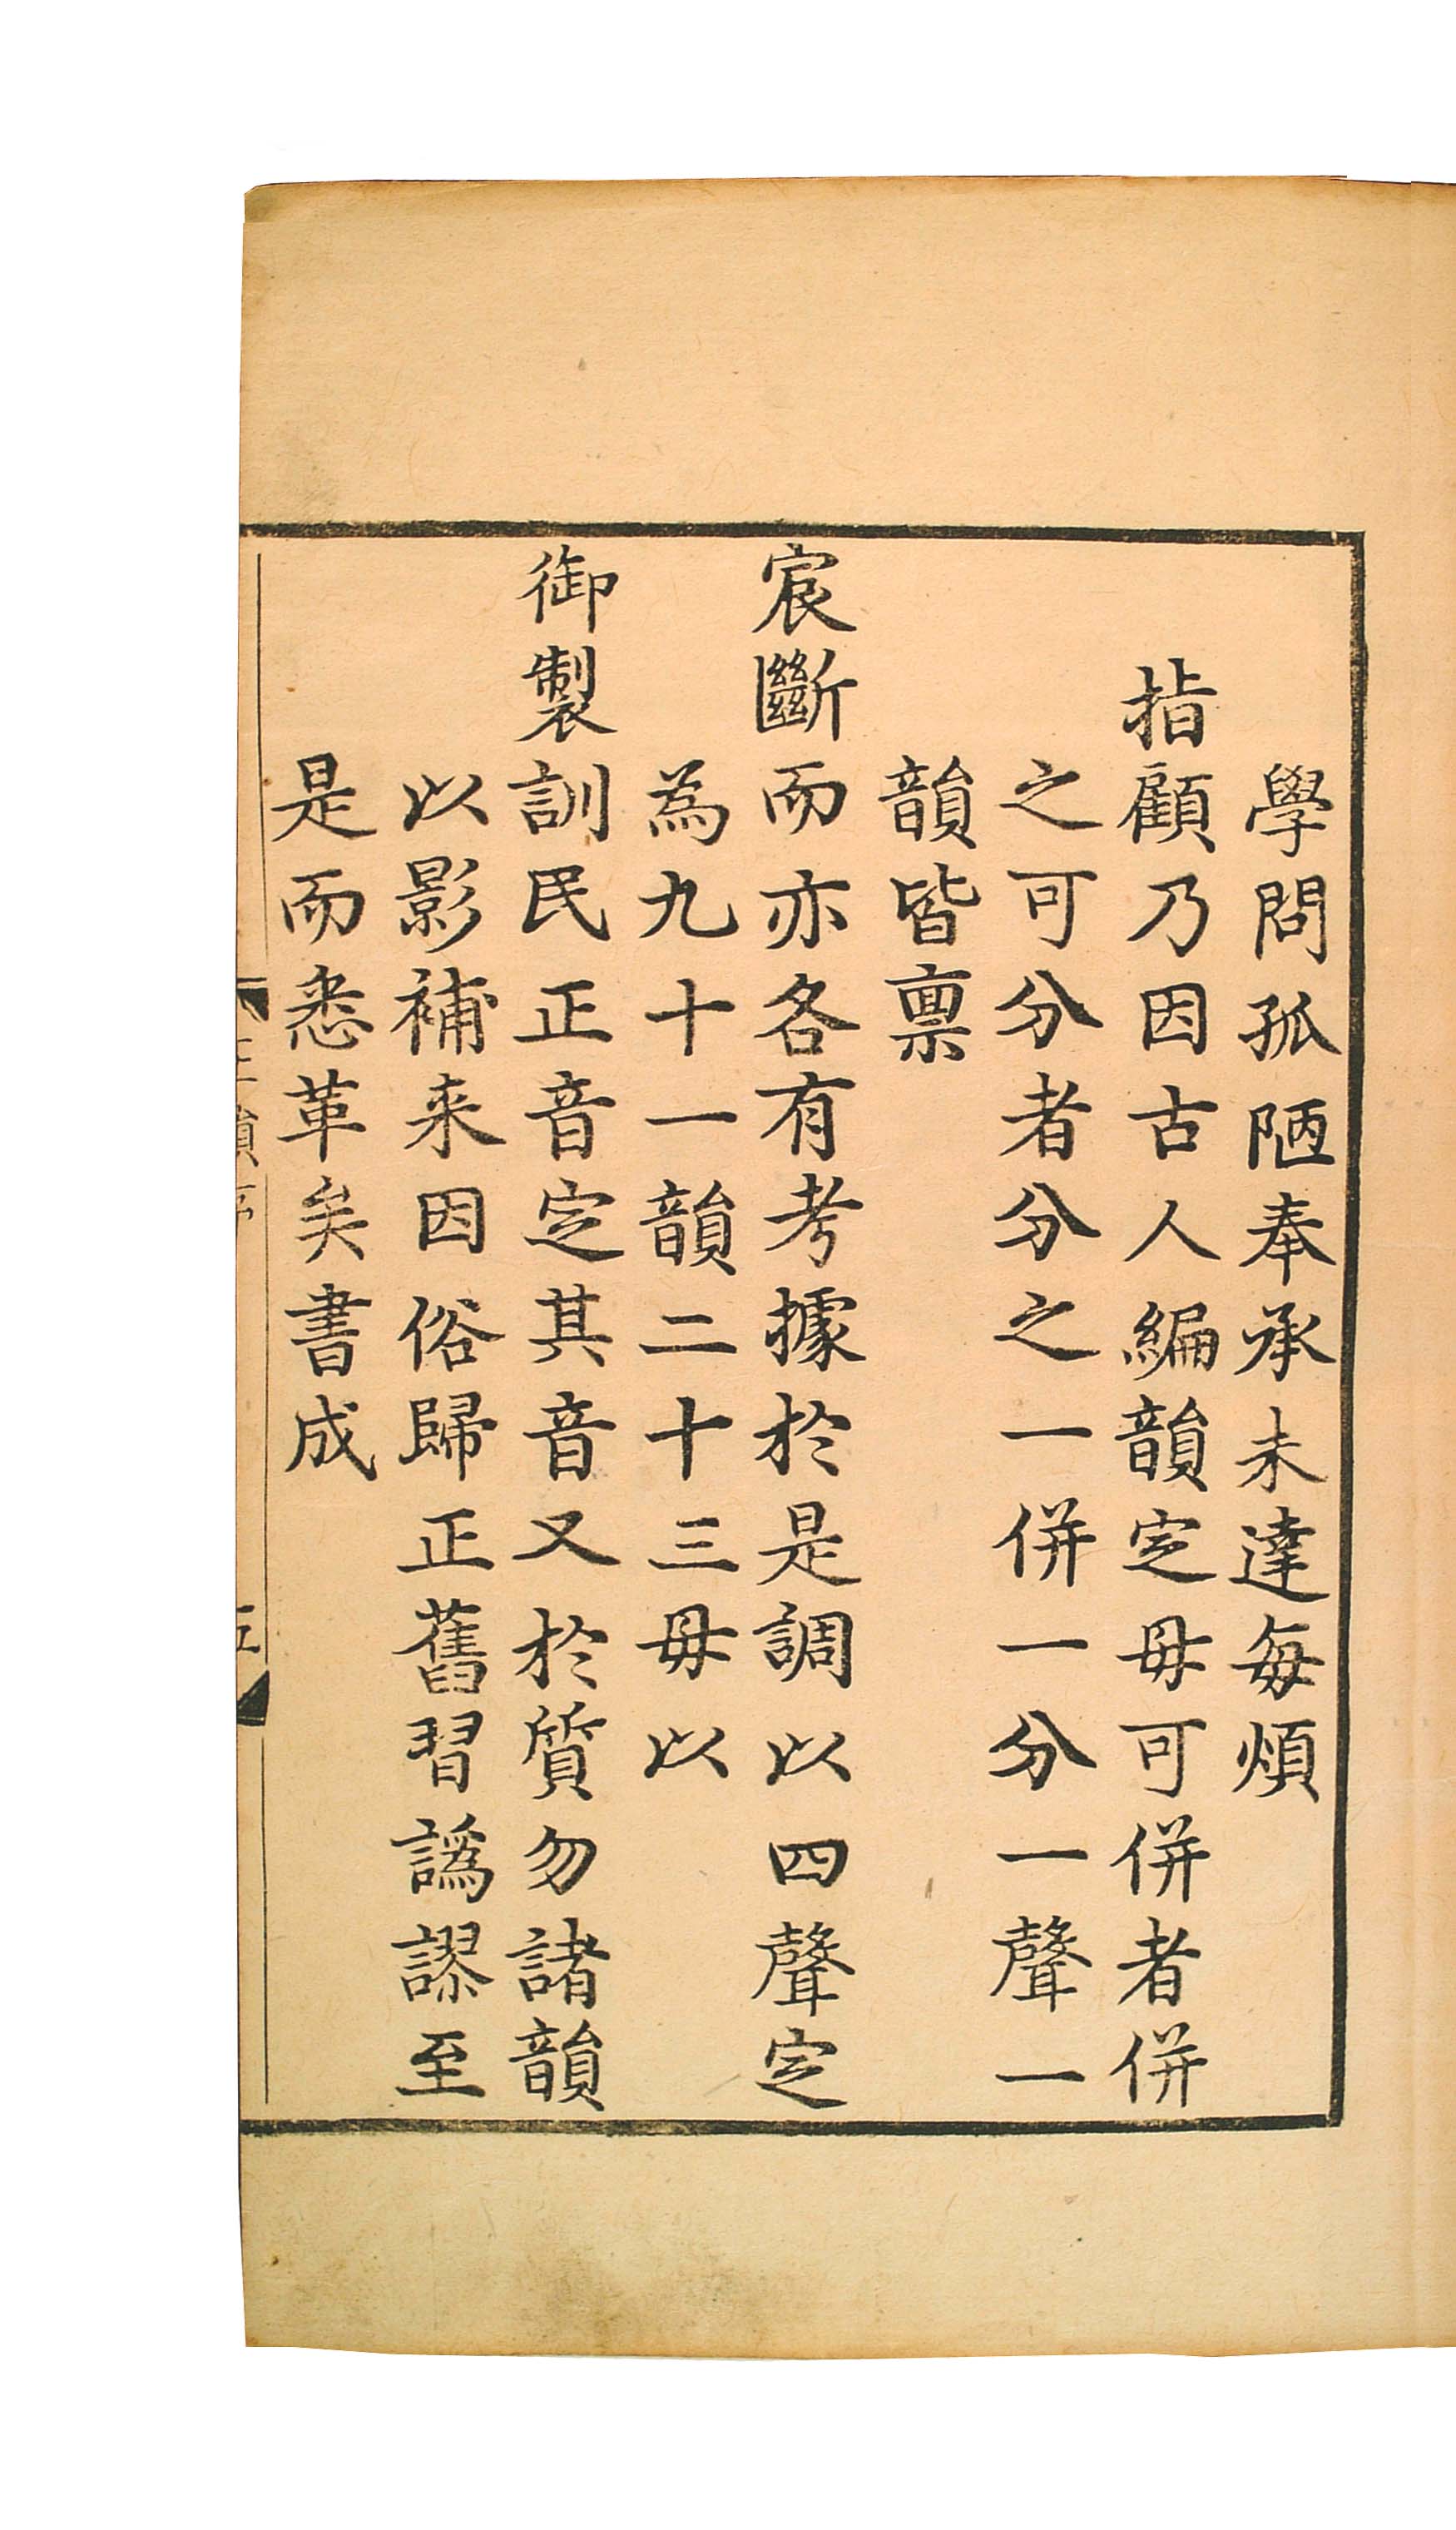 學問孤陋奉承未達每煩
指顧乃因古人編韻定母可併者併
之可分者分之一併一分一聲一
韻皆禀
宸斷而亦各有考據於是調以四聲定
為九十一韻二十三母以
御製訓民正音定其音又於質勿諸韻
以影補来因俗歸正舊習譌謬至
是而悉革矣書成